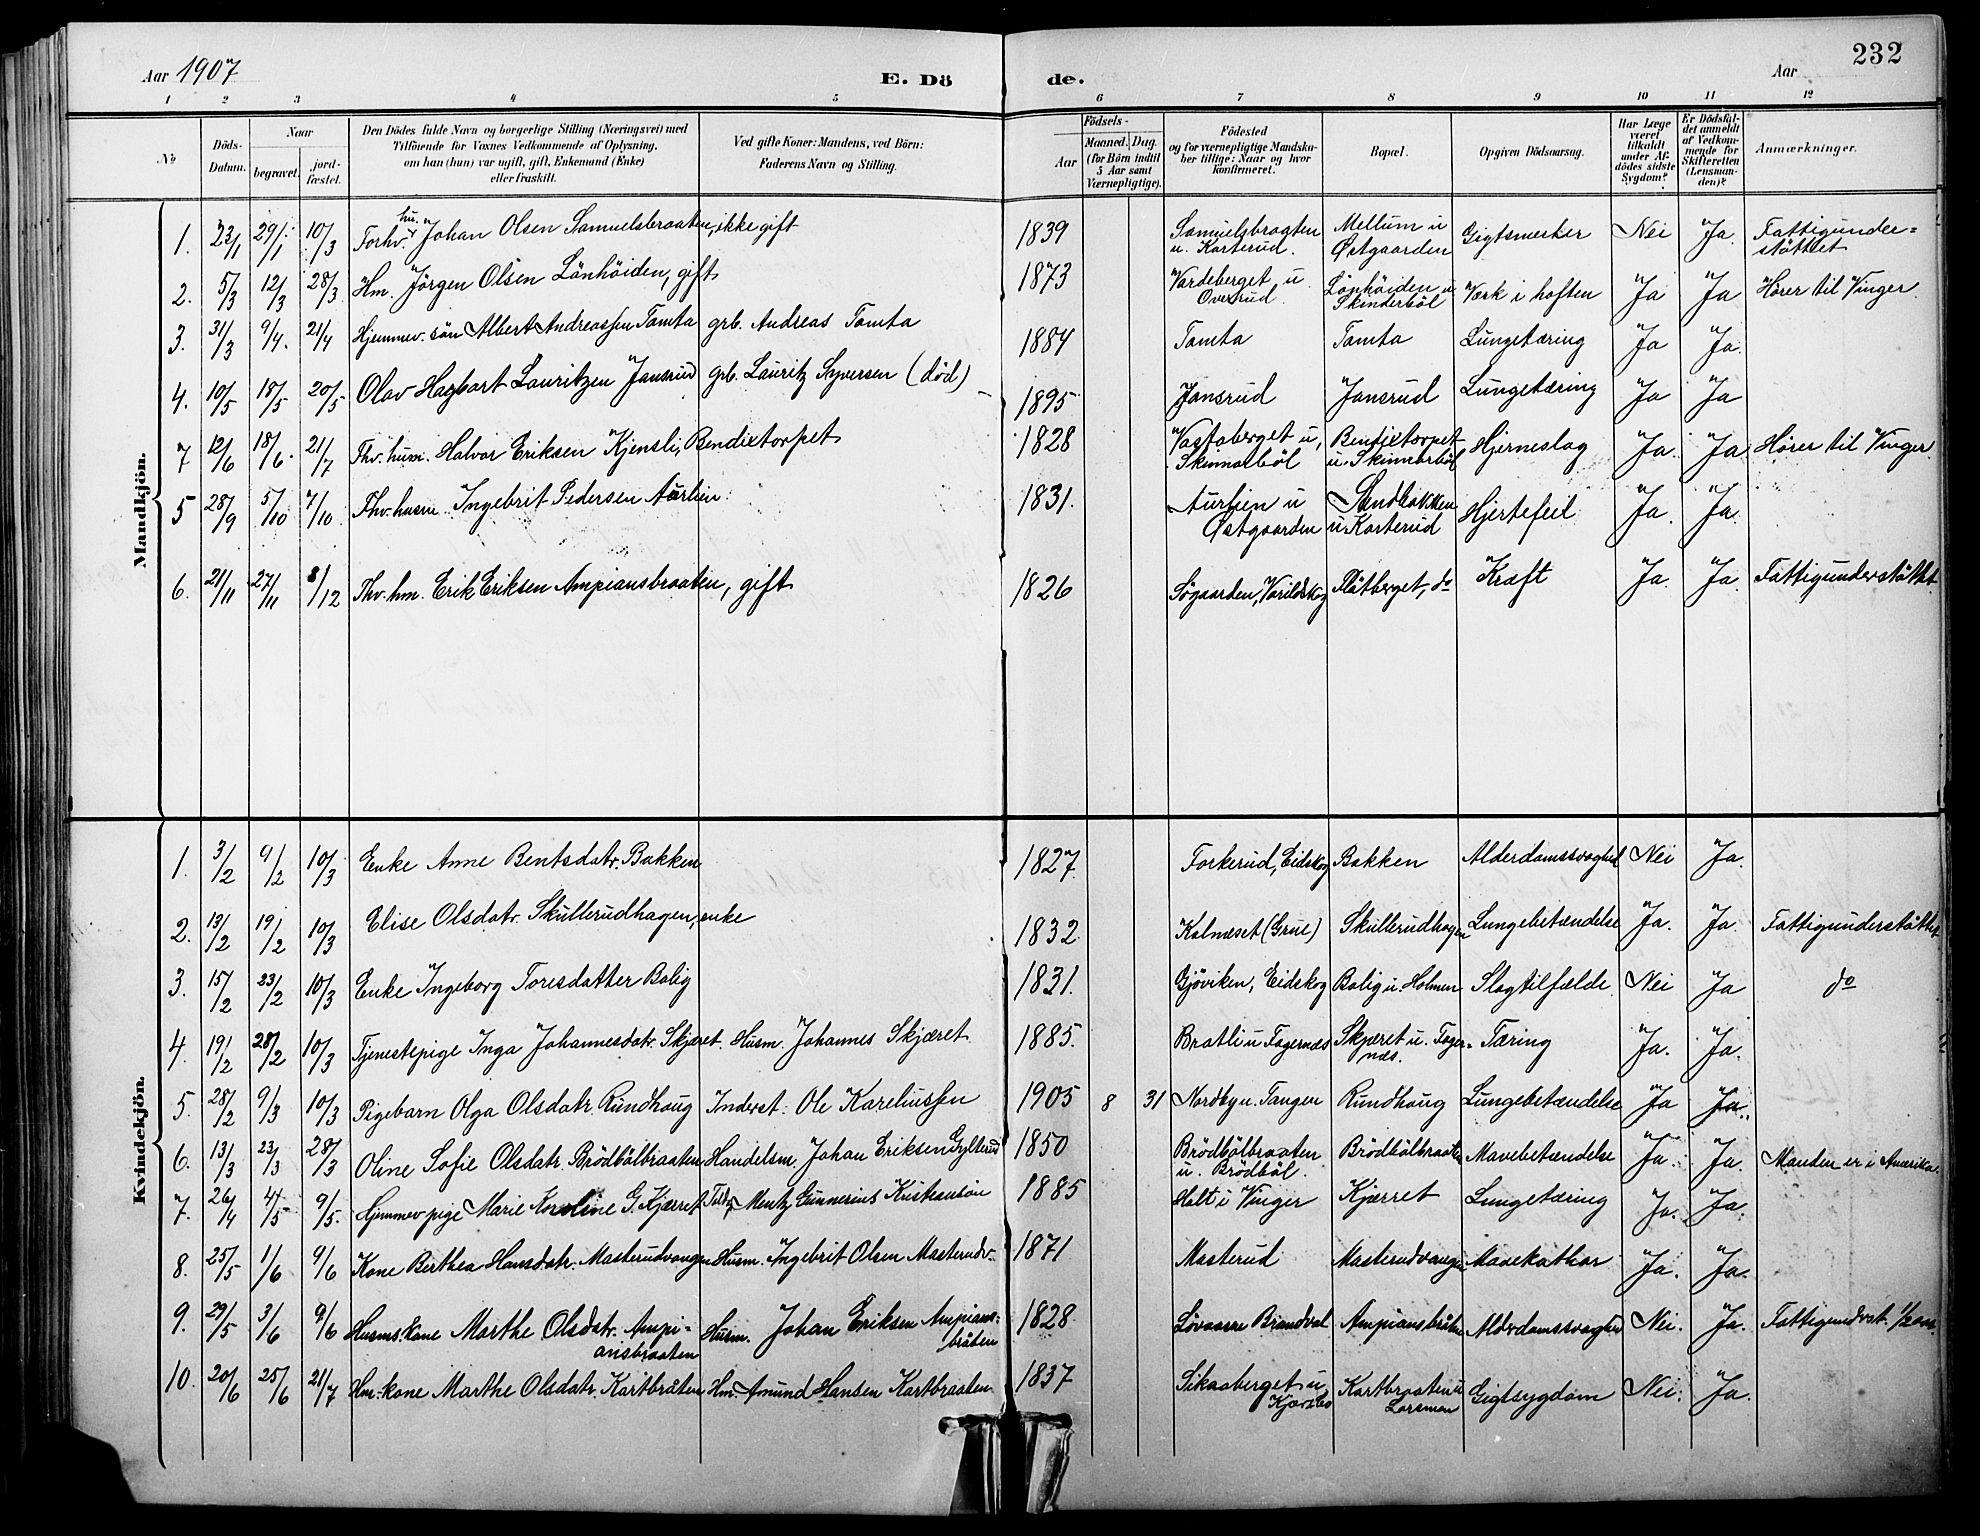 232
Aar 1907
E. Dö de.
Aar
1 2 3 4 5 6 7 8 9 10 11 12
No
Döds-Datum.
Naar
begravet.
jordfæstet.
Den Dödes fulde Navn og borgerlige Stilling (Næringsvei) med
Tilföiende for Voxnes Vedkommende af Oplysning,
om han (hun) var ugift, gift, Enkemand (Enke)
eller fraskilt.
Ved gifte Koner: Mandens, ved Börn:
Faderens Navn og Stilling.
Födsels-
Aar
Maaned. Dag.
(for Börn indtil
5 Aar samt
Værnepligtige).
Födested
og for værnepligtige Mandskaber tillige: Naar og hvor
konfirmeret.
Bopæl.
Opgiven Dödsaarsag.
Har Læge
været
tilkaldt
under Afdödes sidste
Sygdom?
Er Dödsfaldet anmeldt
af Vedkommende for
Skifteretten
(Lensmanden)?
Anmærkninger.
Mandkjön.
1. 23/1 29/1 10/3 Forhv. hu. Johan Olsen Samuelsbraaten, ikke gift 1839 Samuelsbraaten u. Karterud. Mellum u Østgaarden Gigtsmerker Nei Ja. Fattigunderstöttet
2. 5/3 12/3 28/3 Hm. Jörgen Olsen Lönhöiden, gift 1873 Vardeberget u Overud. Lönhöiden u Skinderböl Værk i hoften Ja Ja Hører til Vinger
3. 31/3 9/4. 21/4 Hjemmev. sön Albert Andreassen Tomta grb. Andreas Tomta 1884 Tomta Tomta Lungetæring Ja Ja.
4. 10/5 18/5 20/5 Olav Hagbart Lauritzen Jansrud grb. Lauritz Syversen (död) 1895 Jansrud Jansrud Lungetæring Ja Ja
7 12/6 18/6. 21/7 Fhv. hum. Halvor Eriksen Kjensli, Bendixtorpet 1828 Vastaberget u, Skinnarböl Bendixtorpet u. Skinnarböl Hjerneslag Ja. Ja Hører til Vinger.
5 28/9 5/10 7/10. Fhv. husm Ingebrit Pedersen Aurlien. 1831. Aurlien u Østgaarden Sandbakken u Karterud Hjertefeil Ja. Ja.
6. 21/11 27/11 8/12 Fhv. hm. Erik Eriksen Ampiansbraaten, gift 1826 Søgaarden, Varildskog Flåtberget, do Kræft Ja. Ja. Fattigunderstöttet
Kvindekjön.
1. 3/2 9/2 10/3 Enke Anne Bentsdatr. Bakken 1827. Forkerud, Eidskog Bakken Alderdomssvaghed Nei Ja.
2. 13/2 19/2 10/3 Elise Olsdatr. Skullerudhagen, enke 1832. Kalnæset (Grue) Skullerudhagen Lungebetændelse Ja. Ja. Fattigunderstöttet
3. 15/2 23/2 10/3 Enke Ingeborg Toresdatter Bolig 1831. Gjöviken, Eidskog Bolig u. Holmen Slagtilfælde. Nei Ja do
4. 19/2 28/2 10/3 Tjenestepige Inga Johannesdatr. Skjæret. Husm. Johannes Skjæret 1885. Bratli u Fagernæs Skjæret u. Fagernæs. Tæring Ja. Ja.
5. 28/2 9/3 10/3 Pigebarn Olga Olsdatr. Rundhoug Inderst. Ole Kareliussen 1905 8 31 Nordby u. Tangen Rundhoug Lungebetændelse Ja Ja.
6. 13/3 23/3 28/3 Oline Sofie Olsdatr. Brödbölbraaten Handelsm. Johan Eriksen Gylterud 1850 Brödbölbraaten u. Brödböl. Brödbölbraaten Mavebetændelse Ja. Ja. Manden er i Amerika.
7. 26/4 4/5 9/5. Hjemmev. pige Marie Karoline G. Kjærret Mentz Gunnerius Kristiansön 1885 Holt i Vinger Kjærret Lungetæring Ja. Ja.
8. 25/5 1/6 9/6 Kone Berthea Hansdatr. Masterudvangen Husm. Ingebrit Olsen Masterudv. 1871 Masterud Masterudvangen Mavekathar Ja. Ja.
9. 29/5 3/6 9/6 Husms. kone Marthe Olsdatr. Ampiansbraaten Husm. Johan Eriksen Ampiansbråten 1828. Lövaasen Brandval Ampiansbråten Alderdomssvaghed Nei. Ja. Fattigundrst.
10. 20/6 25/6 21/7 Hm. kone Marthe Olsdatr. Kartbråten Hm. Amund Hansen Kartbraaten 1837 Sikaaberget u Kartbraaten u Larsmon Gigtsygdom Nei. Ja.